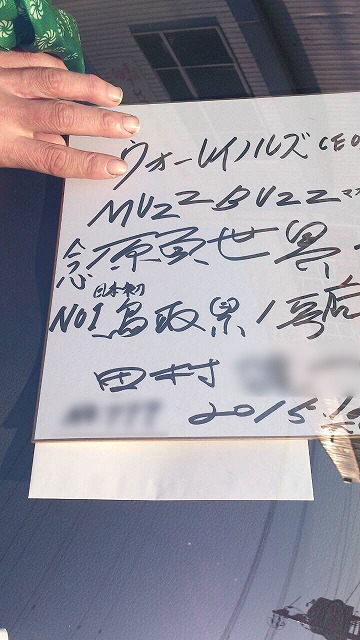 ウォーレイノルズ CEO
MUZZ BUZZ
念願世界
日本初
NO1 鳥取県1号店
田村
2015.1